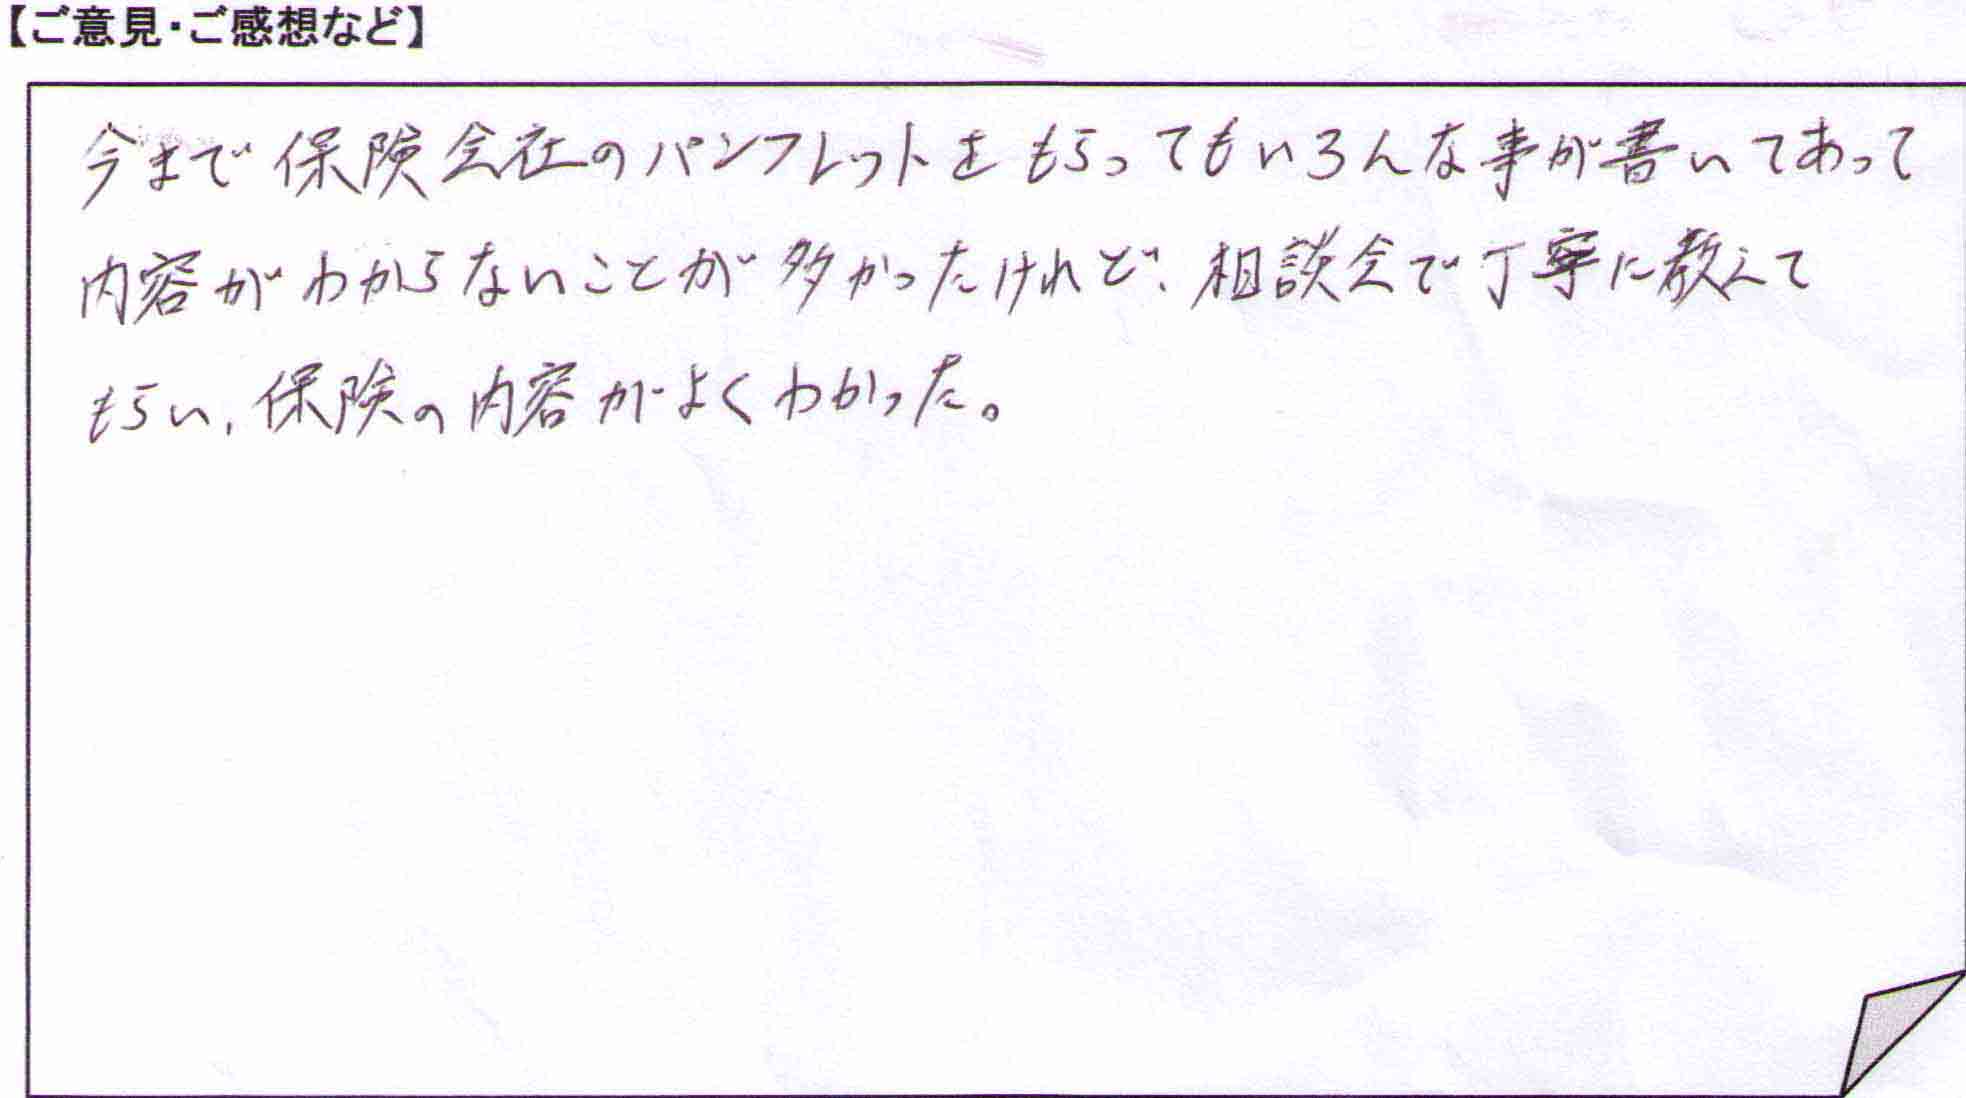 【ご意見・ご感想など】
今まで保険会社のパンフレットをもらってもいろんな事が書いてあって
内容がわからないことが多かったけれど、相談会で丁寧に教えて
もらい、保険の内容がよくわかった。